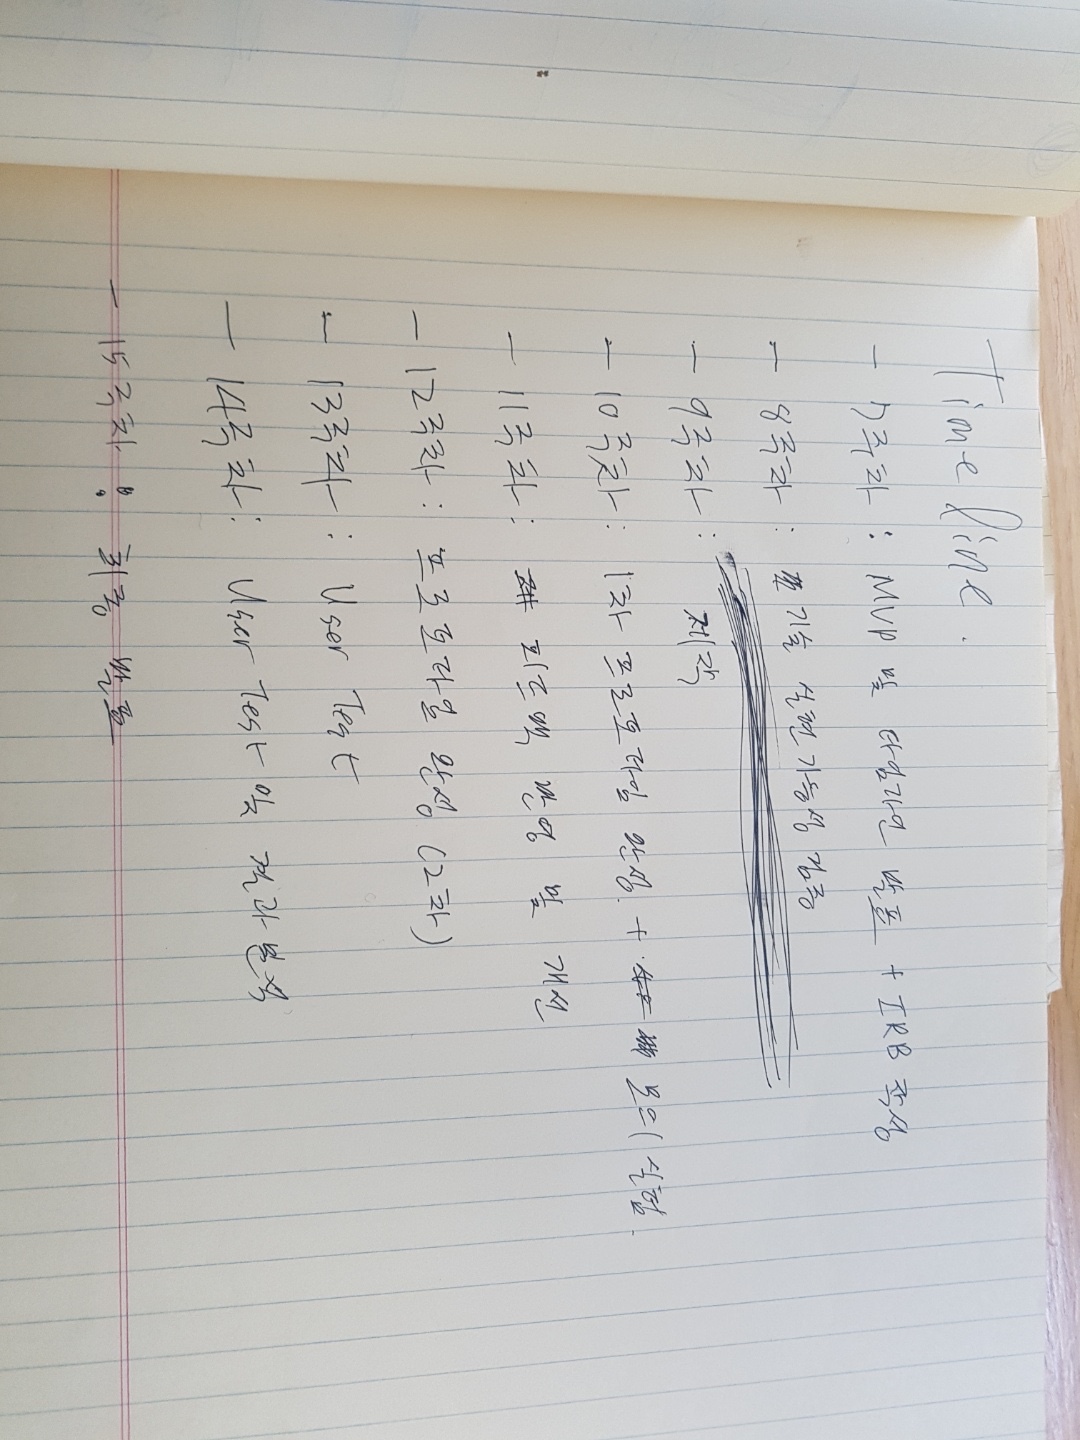 Time line.
- 7주차 : MVP 및 타임라인 발표 + IRB 작성
- 8주차 : 기술 실현가능성 검증
- 9주차 : 제작
- 10주차 : 1차 프로토타입 완성 +
- 11주차 : 피드백 반영 및 개선
- 12주차 : 프로토타입 완성 (2차)
- 13주차 : User Test
- 14주차 : User Test 및 결과 분석
- 15주차 : 최종 발표